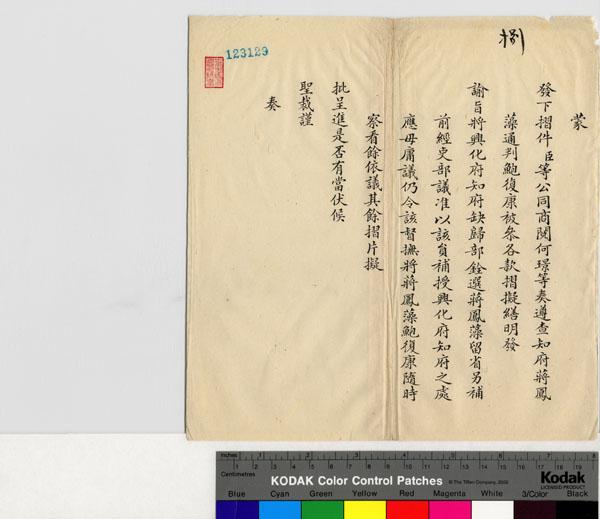 捌
蒙
發下摺件臣等公同商閱何璟等奏遵查知府蔣鳳
藻通判鮑復康被參各款摺擬繕明發
諭旨將興化府知府缺歸部銓選蔣鳳藻留省另補
前經吏部議准以該員補授興化府知府之處
應毋庸議仍令該督撫將蔣鳳藻鮑復康隨時
察看餘依議其餘摺片擬
批呈進是否有當伏候
聖裁謹
奏
123129
Inches 1 2 3 4 5 6 7 8
Centimetres 1 2 3 4 5 6 7 8 9 10 11 12 13 14 15 16 17 18 19
KODAK Color Control Patches
© The Tiffen Company, 2000
Kodak
LICENSED PRODUCT
Blue Cyan Green Yellow Red Magenta White 3/Color Black